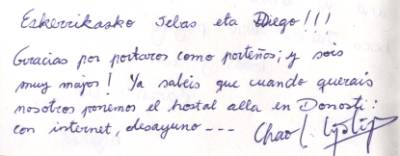 Eskerrikasko Jelas eta Diego!!!
Gracias por portaros como porteños; y sois
muy majos! Ya sabeis que cuando querais
nosotros ponemos el hostal alla en Donosti:
con internet, desayuno ---
Chao